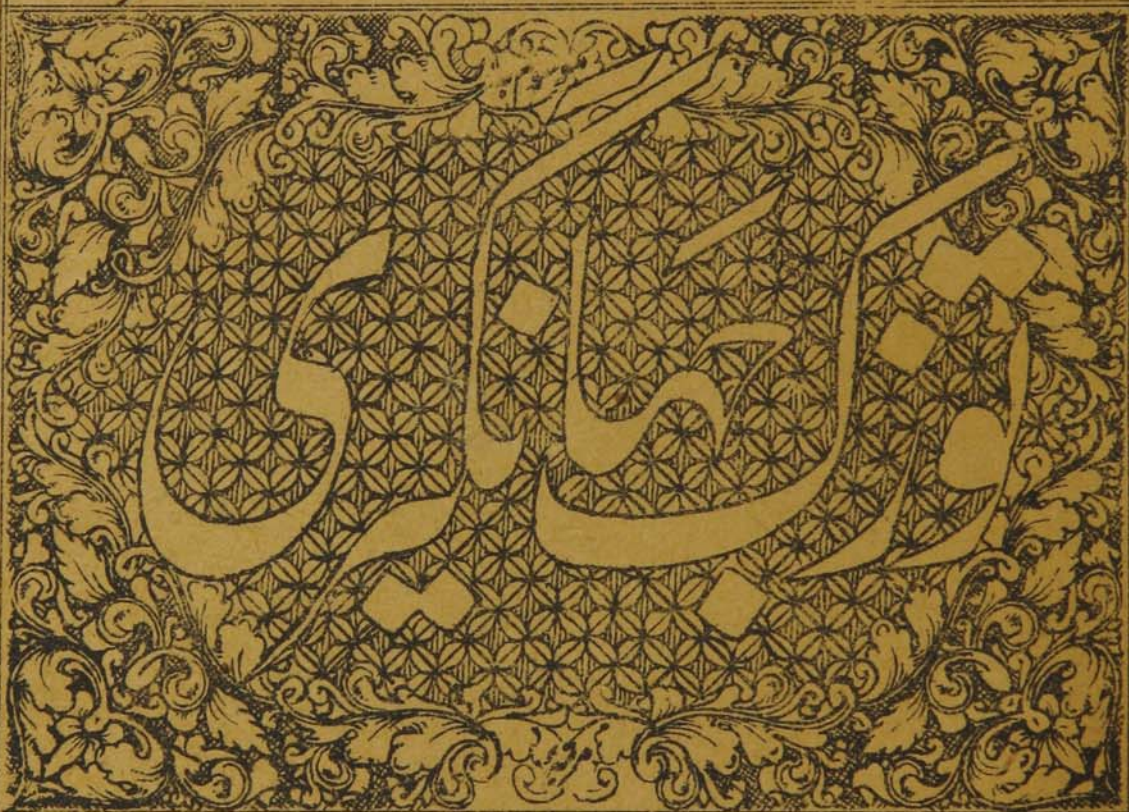 توزک جہانگیری